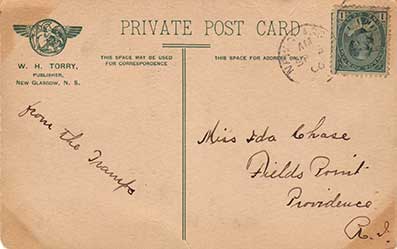 PRIVATE POST CARD
W. H. TORRY,
PUBLISHER,
NEW GLASGOW, N. S.
THIS SPACE MAY BE USED
FOR CORRESPONDENCE
THIS SPACE FOR ADDRESS ONLY
1 1
from the Tramps
Miss Ida Chase
Fields Point
Providence
R. I.